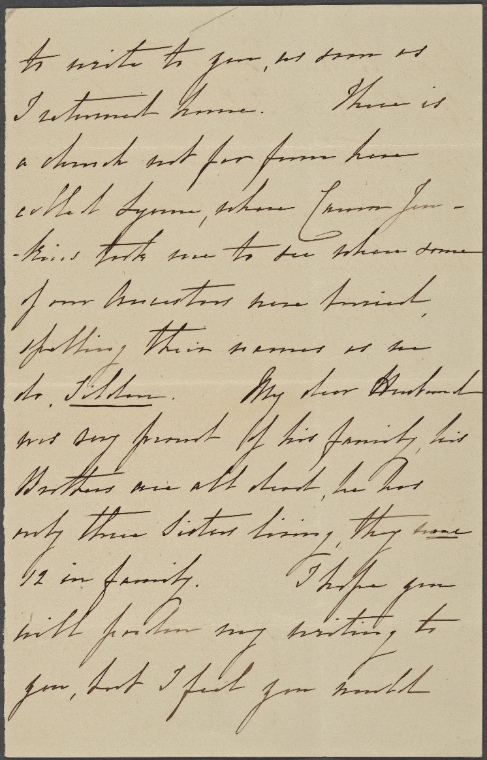 to write to you, as soon as
I returned home. There is
a church not far from here
called Lynne, where Canon Jen-
-kins took me to see where some
of our Ancestors were buried,
spelling their names as we
do, Tilden. My dear Husband
was very proud of his family, his
Brothers are all dead, he has
only three Sisters living, they were
12 in family. I hope you
will pardon my writing to
you, but I feel you would